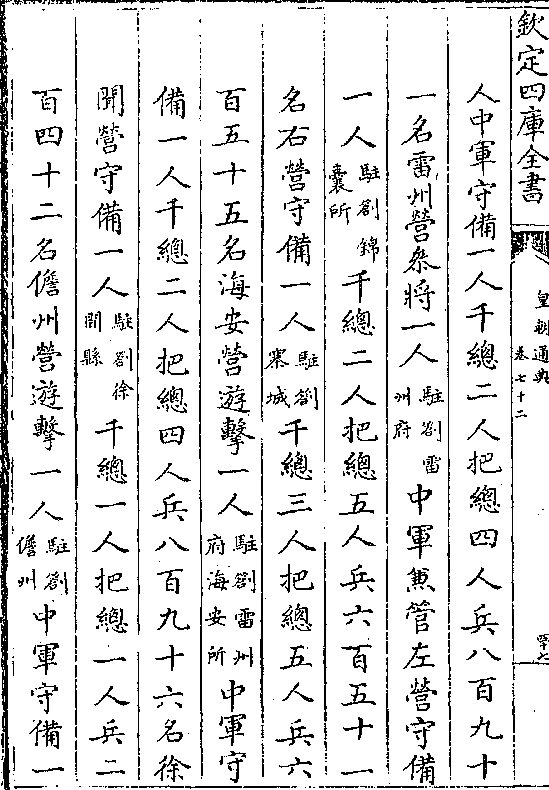 欽定四庫全書
皇朝通典
卷七十二
人中軍守備一人千總二人把總四人兵八百九十
一名雷州營叅將一人駐劄雷州府中軍兼管左營守備
一人駐劄錦囊所千總二人把總五人兵六百五十一
名右營守備一人駐劄寨城千總三人把總五人兵六
百五十五名海安營遊擊一人駐劄雷州府海安所中軍守
備一人千總二人把總四人兵八百九十六名徐
聞營守備一人駐劄徐聞縣千總一人把總一人兵二
百四十二名儋州營遊擊一人駐劄儋州中軍守備一